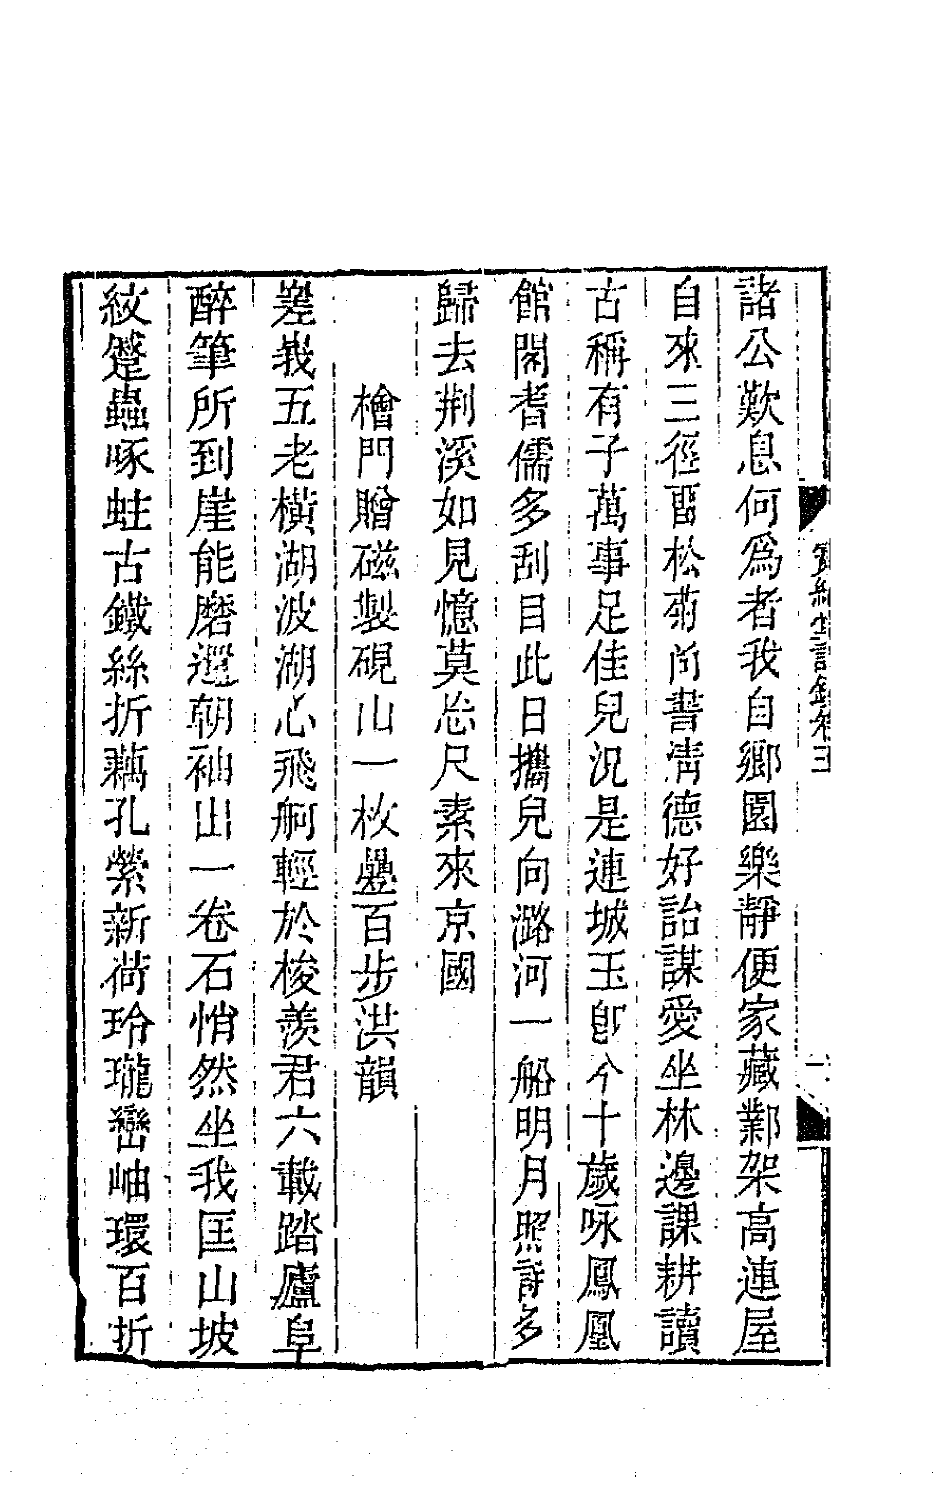 諸公歎息何爲者我自鄉園樂靜便家藏鄴架高連屋
自來三徑畱松菊尙書淸德好詒謀愛坐林邊課耕讀
古稱有子萬事足佳兒況是連城玉卽今十歲咏鳳凰
館閣耆儒多刮目此日攜兒向潞河一船明月照詩多
歸去荆溪如見憶莫忘尺素來京國
檜門贈磁製硯山一枚疊百步洪韻
嵳峩五老橫湖波湖心飛舸輕於梭羨君六載踏廬阜
醉筆所到崖能磨還朝袖出一卷石悄然坐我匡山坡
紋蹙蟲啄蛀古鐵絲折藕孔縈新荷玲瓏巒岫環百折
寶綸堂詩鈔卷三